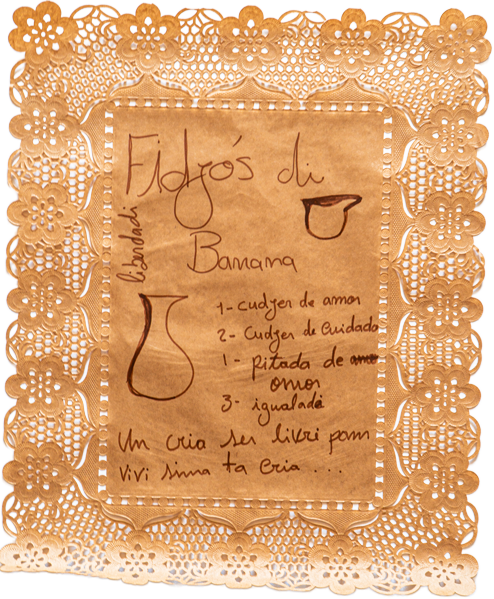 Fidjós di
Banana
liberdadi
1- cudjer de amor
2- cudjer de cuidado
1- pitada de amo
amor
3- igualade
Un cria ser livri pam
vivi sima ta cria ...